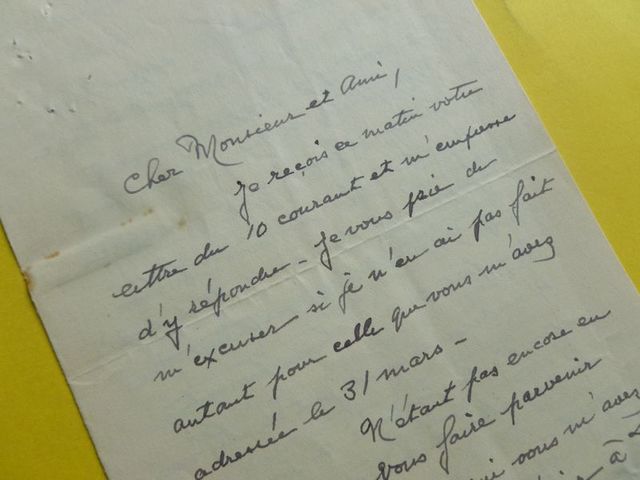 Cher Monsieur et Ami,
Je reçois ce matin votre
lettre du 10 courant et m'empresse
d'y répondre - Je vous prie de
m'excuser si je n'en ai pas fait
autant pour celle que vous m'avez
adressée le 31 mars -
N'étant pas encore en
vous faire parvenir
vous m'avez
à